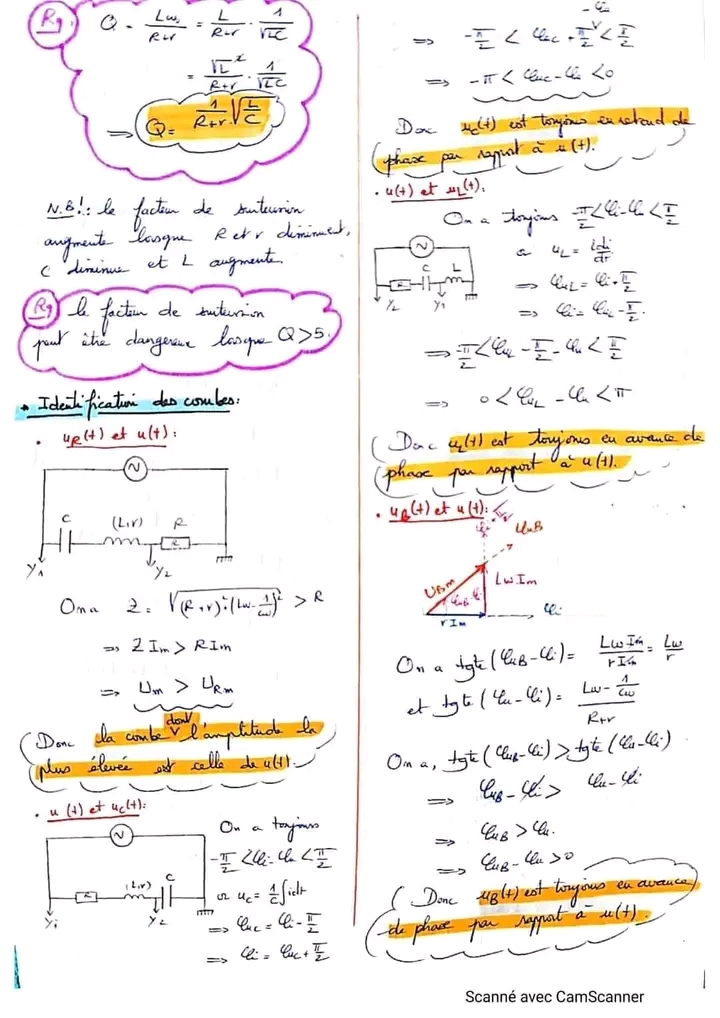 Rq
Q = Lω₀/(R+r) = L/(R+r) · 1/√LC
= √L²/(R+r) · 1/√LC
⇒ Q = 1/(R+r) √(L/C)
N.B!: le facteur de surtension
augmente lorsque R et r diminuent,
C diminue et L augmente.
Rq le facteur de surtension
peut être dangereux lorsque Q > 5.
* Identification des courbes:
• uR(t) et u(t):
N
C (L,r) R
R
Y1 Y2
On a Z = √((R+r)²+(Lω-1/Cω)²) > R
⇒ Z Im > R Im
⇒ Um > URm
Donc la courbe dont l'amplitude la
plus élevée est celle de u(t).
• u(t) et uc(t):
N
R (L,r) C
Y1 Y2
On a toujours
-π/2 < φi - φu < π/2
or uc = 1/C ∫idt
⇒ φuc = φi - π/2
⇒ φi = φuc + π/2
-φu
⇒ -π/2 < φuc + π/2 < π/2
⇒ -π < φuc - φu < 0
Donc uc(t) est toujours en retard de
phase par rapport à u(t).
• u(t) et uL(t):
On a toujours -π/2 < φi - φu < π/2
N
R C L
Y2 Y1
or uL = Ldi/dt
⇒ φuL = φi + π/2
⇒ φi = φuL - π/2.
⇒ -π/2 < φuL - π/2 - φu < π/2
⇒ 0 < φuL - φu < π
Donc uL(t) est toujours en avance de
phase par rapport à u(t).
• uB(t) et u(t):
φuB
UBm LωIm
φuB-φi
rIm φi
On a tgte(φuB - φi) = LωIm/rIm = Lω/r
et tgte(φu - φi) = (Lω - 1/Cω)/(R+r)
On a, tgte(φuB - φi) > tgte(φu - φi)
⇒ φuB - φi > φu - φi
⇒ φuB > φu.
⇒ φuB - φu > 0
Donc uB(t) est toujours en avance
de phase par rapport à u(t).
Scanné avec CamScanner